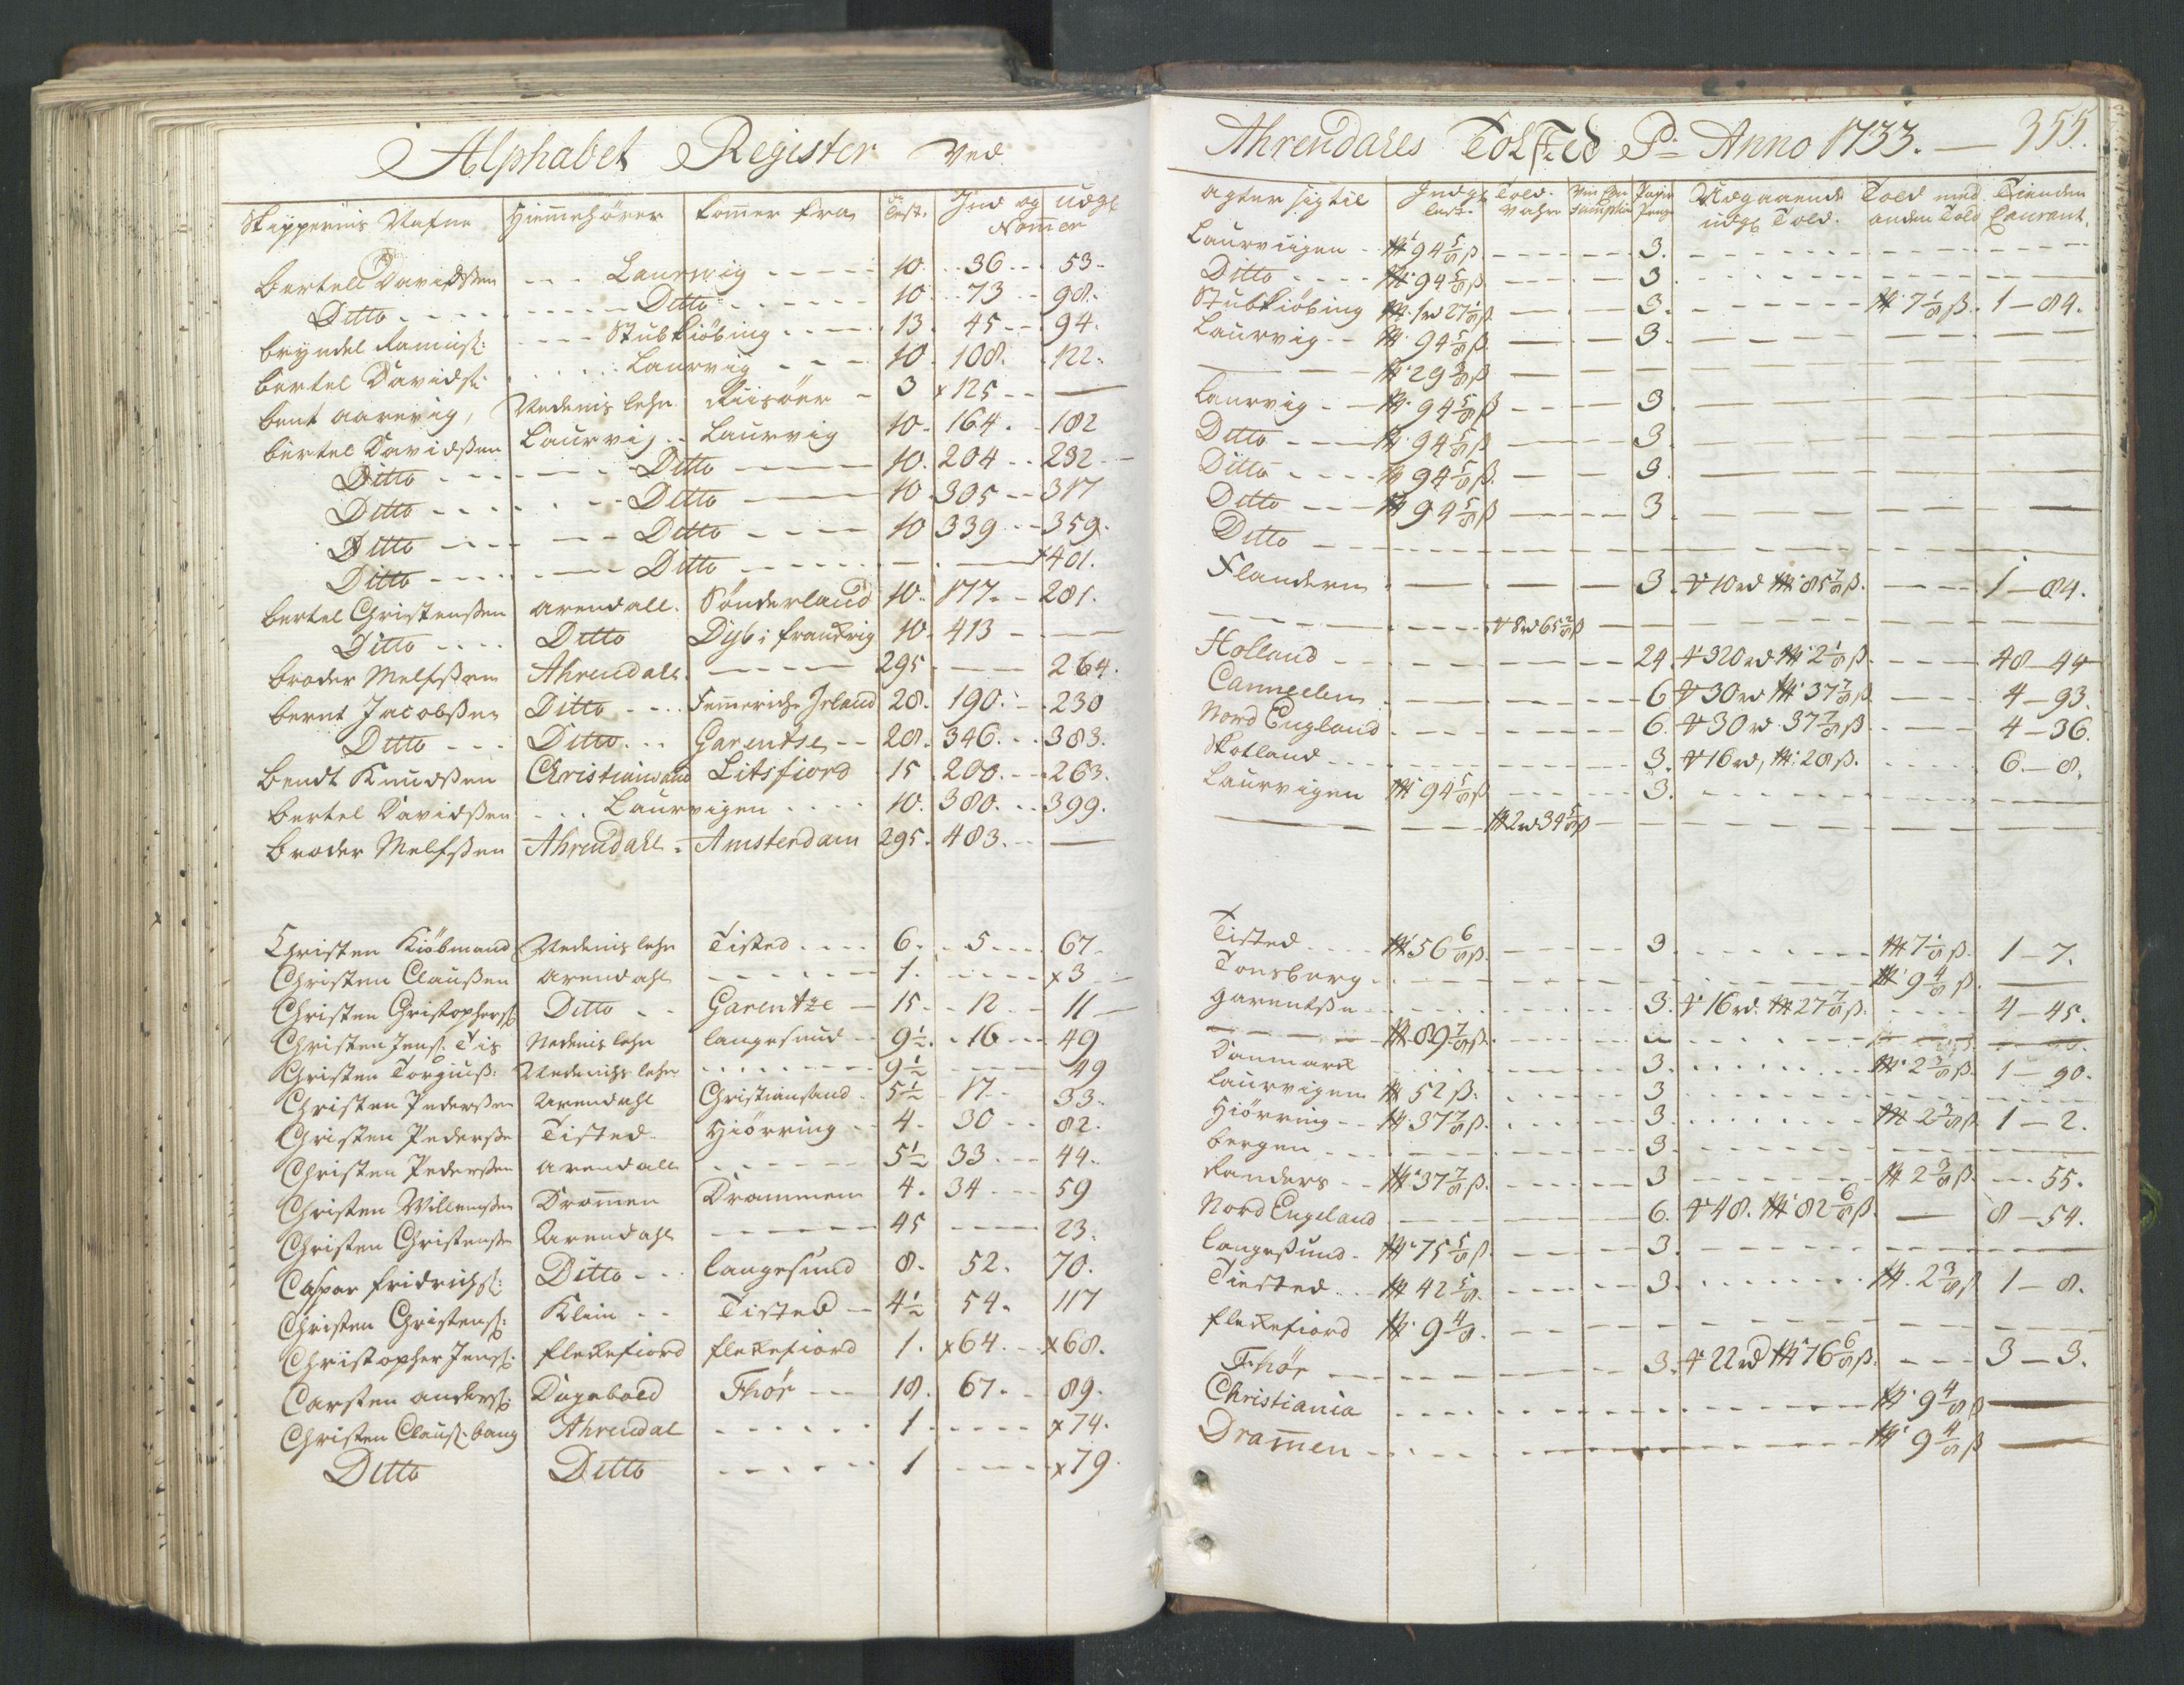 Alphabet Register Ved
Skippernis Nafne Hiemmehörer kommer fra Lest. Ind og udg
Nommer
Bertell Davidsen - - - Laurwig - - - - - 10. - - 36 - - - 53 -
Ditto - - - - - - - - - Ditto - - - - - - 10 - - 73 - - 98.
Bryndel - - - - Stubkiöbing - - - - 13. 45 - - 94.
Bertel Davids: - - - - Laurvig - - - 10. 108. - 122.
Bent Aarevig, Nedenis lehn Riisöer - 3 x 125 - - —
Bertel Davidsen Laurvig - - Laurvig 10. 164. - 182
Ditto - - - - - - Ditto — 10. 204 - - 232 -
Ditto - - - - - - Ditto — 10 305 - - 317
Ditto - - - - - - Ditto - - - - 10 339 - - 359.
Ditto - - - - - - Ditto - - - - - - - x 401.
Bertel Christensen Arendall. Sönderland 10. 177. - 281.
Ditto - - - - Ditto Dyb i Franckrig 10. 413 - —
Broder Melfsen Ahrendall. - - - - 295 - - 264.
Bernt Jacobsen Ditto - - - Irland 28. 190. - - 230
Ditto - - - Ditto - - - Garentse - - 28. 346. - - 383.
Bendt Knudsen Christiansand Litsfiord 15. 200. - - 263.
Bertel Davidsen - - - Laurvigen - - - - 10. 380. - - 399.
Broder Melfsen Ahrendahl - Amsterdam 295. 483. - - —
Christen Kiöbmand Nedenis lehn Tisted - - - - 6. - 5 - - - 67 -
Christen Clausen Arendahl - - - - - - 1. - - - - - x 3 - -
Christen Christophers: Ditto - - Garentze — 15 - - 12 - - 11 —
Christen Jens: Tis Nedenis lehn Langesund - - 9½ - 16 - - - 49
Christen Torgius: Nedenis lehn - - - - - - - - 9½ - - - - 49
Christen Pedersen Arendahl Christiansand - 5½ 17 - - 33.
Christen Pederse Tisted - Hiörring - - 4. 30 - - 82.
Christen Pedersen Arendall - - - - - - 5½ 33 - - - 44.
Christen Willemsen Drammen Drammen 4. 34 - - - 59
Christen Christensen Arendahl - - - - - 45 - - - - 23.
Caspar Fridrichs: Ditto - - - Langesund 8. 52. 70.
Christen Christens: Klein - - Tisted — 4½ 54. 117
Christopher Jens: Flekefiord Flekefiord 1. x 64. - - x 68.
Carsten Anders: Dagebold Thör - - - 18. 67. - 89.
Christen Claus: Bang Ahrendal - - - - - 1 - - - - - x 74.
Ditto Ditto - - - - - 1 - - - - x 79.
Ahrendahls Toldsted P: Anno 1733. — 355.
agter sig til Indg Told. Udgaaende Told med Tienden
lest. Vahre udg Told. anden Told Courant.
Laurviigen - 94 5/8 ß - - - - - - 3. - - - - - -
Ditto - - - - 94 5/8 ß - - - - - - 3 - - - - - -
Stubkiöbing 1 rd 27 1/8 ß - - - - 3. - - - - - - 7 1/8 ß. 1 — 84.
Laurvig - - 94 5/8 ß — - — 3. - - - - -
— — — 29 3/8 ß — - - - - - -
Laurvig - - 94 5/8 ß - - - - 3 - - - -
Ditto - - - 94 5/8 ß - - - - 3. - - - -
Ditto - - - - 94 5/8 ß. - - - 3. - - - -
Ditto - - - 94 5/8 ß - - - - 3. - - - -
Ditto - - - - - - - - - -
Flandern. - - - - 3. 10 rd 85 7/8 ß. - - - - 1 — 84.
- - - - - - - 8 rd 65 2/8 ß - - - - -
Holland - - - - - - - 24. 320 rd 2 1/8 ß. - - - - 48 — 44
- - - - - - 6 30 rd 37 7/8 ß - - - 4 — 93.
Nord England - - - - - - 6. 30 rd 37 7/8 ß - - - 4 — 36.
Skotland - - - - - - - 3. 16 rd, 28 ß. - - - - 6. — 8.
Laurvigen 94 5/8 ß - - - - - 3. - - - - - -
— - - - 2 rd 34 5/8 ß - - - - - -
Tisted - - - 56 6/8 ß. - - - - 3 - - - - - - - 7 1/8 ß. 1 — 7.
Tonsberg - - - - - - - - - - - - 9 4/8 ß. —
Garentsen - - - - - - - - 3. 16 rd. 27 7/8 ß. - - - - 4 — 45.
- - - - - 89 7/8 ß. - - - - -
Danmark - - - - - - 3. - - - - - - - - 2 3/8 ß. 1 — 90.
Laurvigen 52 ß. - - - - - - 3 - - - - - -
Hiörring - - 37 7/8 ß. - - - - - - 3. - - - - - - - 2 3/8 ß 1 — 2.
Bergen - - - - - - - - 3 - - - - - -
Randers - - 37 7/8 ß. - - - - - 3 - - - - - - 2 3/8 ß. - - - 55.
Nord Engeland - - - - - 6. 48. 82 6/8 ß. — 8 — 54.
Langesund - 75 5/8 ß. - - - - 3. - - - - - -
Tiested - - - 42 5/8. - - - - - 3. - - - - - - - 2 3/8 ß 1 — 8.
Flekefiord 9 4/8. - - - - - - - -
Thör - - - - - - - 3. 22 rd 76 6/8 ß. - - - 3 — 3.
Christiania - - - - - - - - - - - 9 4/8 ß —
Drammen - - - - - - - - - 9 4/8 ß —